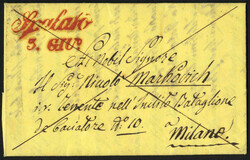 Spalato
5. GIU:
Al Nobil Signore
Al Sig.r Nicolò Markovich
i. r. tenente nell' Inclito Battaglione
de' Cacciatori N.º 10.
Milano